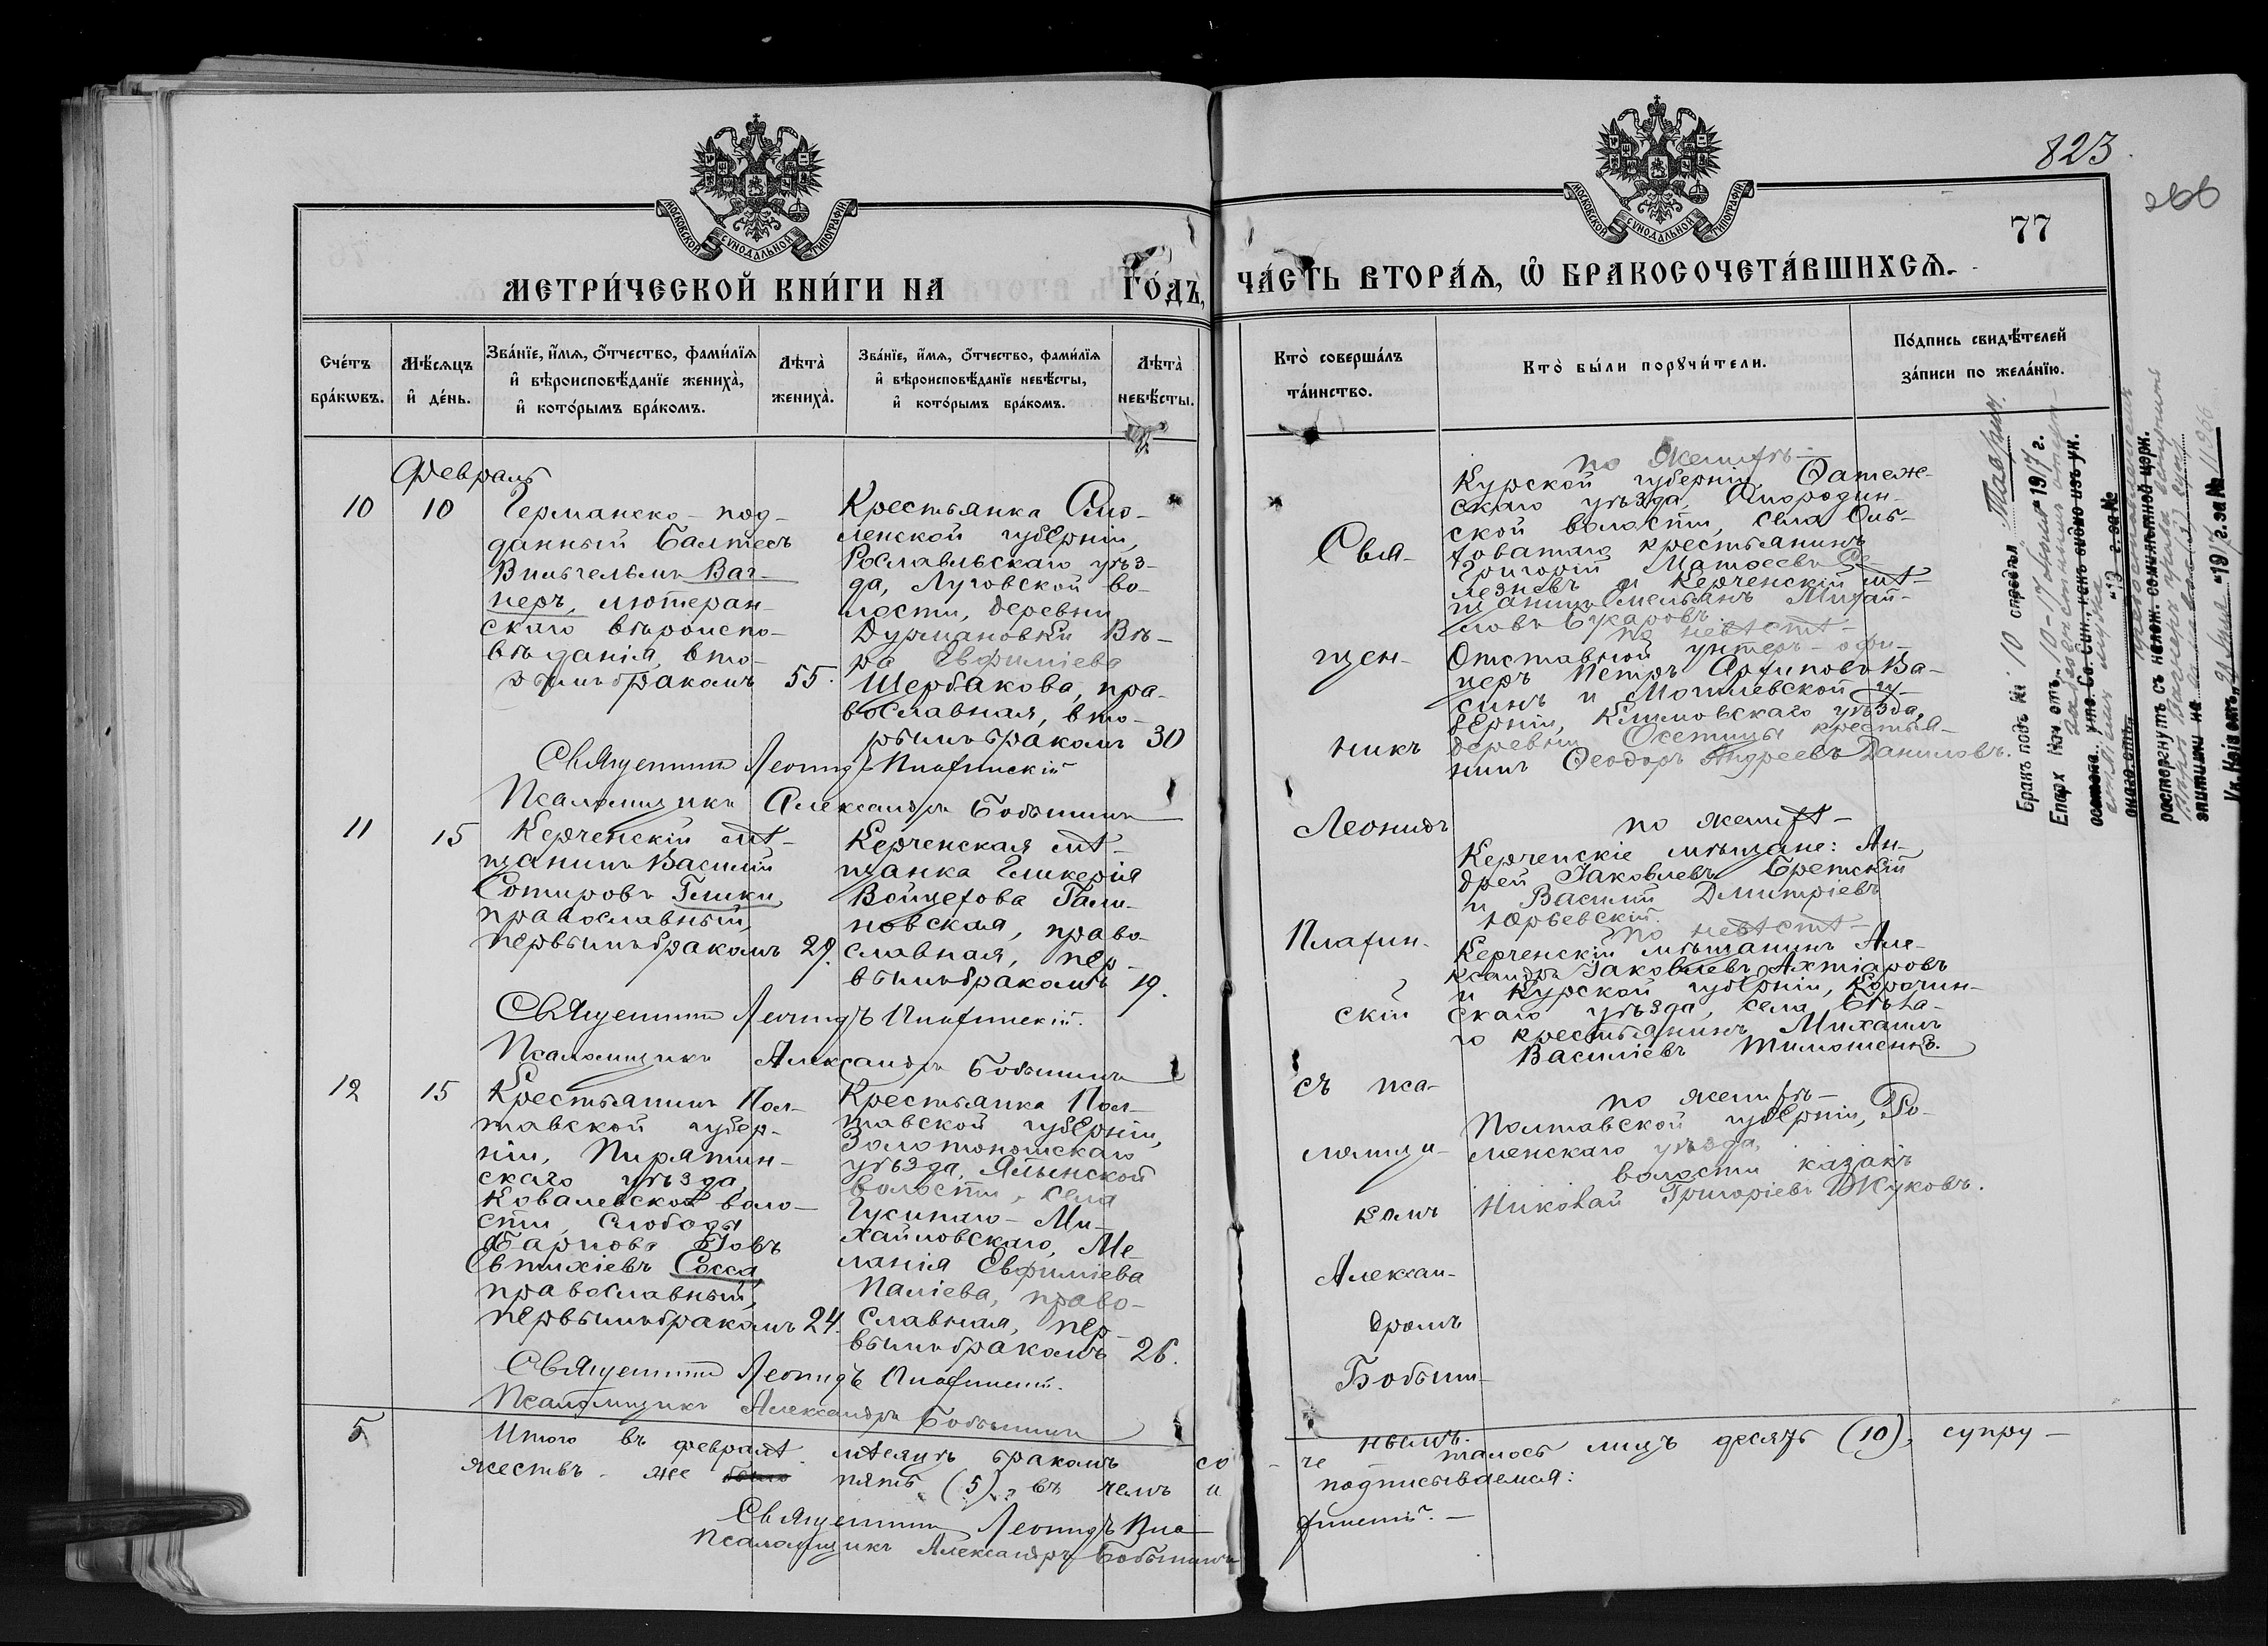 МОСКОВСКОЙ СѴНОДАЛЬНОЙ ТИПОГРАФІИ
МЕТРИ́ЧЕСКОЙ КНИ́ГИ НА ГО́ДЪ,
Сче́тъ бра́кѡвъ.
Мѣ́сяцъ и҆ де́нь.
Зва́нїе, и҆́мѧ, ѻ҆́тчество, фами́лїѧ
и҆ вѣроисповѣ́данїе жениха̀,
и҆ кото́рымъ бра́комъ.
Лѣта̀ жениха̀.
Зва́нїе, и҆́мѧ, ѻ҆́тчество, фами́лїѧ
и҆ вѣроисповѣ́данїе невѣ́сты,
и҆ кото́рымъ бра́комъ.
Лѣта̀ невѣ́сты.
Февраль
10
10
Германско-под-
данный Балтесъ
Вильгельмъ Ваг-
неръ, лютеран-
скаго вѣроиспо-
вѣданія, вто-
рымъ бракомъ
55.
Крестьянка Смо-
ленской губерніи,
Рославльскаго уѣз-
да, Луговской во-
лости, деревни
Дурмановки Вѣ-
ра Евфиміева
Щербакова, пра-
вославная, вто-
рымъ бракомъ
30
Священникъ Леонидъ Піафинскій
Псаломщикъ Александръ Бобынинъ
11
15
Керченскій мѣ-
щанинъ Василій
Сотировъ Глики,
православный,
первымъ бракомъ
29.
Керченская мѣ-
щанка Гликерія
Войцехова Гали-
новская, право-
славная, пер-
вымъ бракомъ
19.
Священникъ Леонидъ Піафинскій.
Псаломщикъ Александръ Бобынинъ
12
15
Крестьянинъ Пол-
тавской губер-
ніи, Пирятин-
скаго уѣзда,
Ковалевской воло-
сти, слободы
Іовъ
Евтихіевъ Сосса,
православный,
первымъ бракомъ
24.
Крестьянка Пол-
тавской губерніи,
Золотоношскаго
уѣзда,
волости, села
Гусинаго-Ми-
хайловскаго, Ме-
ланія Евфиміева
Паліева, право-
славная, пер-
вымъ бракомъ
26.
Священникъ Леонидъ Піафинскій.
Псаломщикъ Александръ Бобынинъ
5
Итого въ февралѣ мѣсяцѣ бракомъ со
жествъ же было пять (5), въ чемъ и
Священникъ Леонидъ Піа-
Псаломщикъ Александръ Бобынинъ
823.
266
МОСКОВСКОЙ СѴНОДАЛЬНОЙ ТИПОГРАФІИ
77
ЧА́СТЬ ВТОРА́Ѧ, Ѽ БРАКОСОЧЕТА́ВШИХСѦ.
Кто̀ соверша́лъ
та́инство.
Кто̀ бы́ли порꙋчи́тели.
По́дпись свидѣ́телей
за́писи по жела́нїю.
Свя-
щен-
никъ
Леонидъ
Піафин-
скій
съ пса-
ломщи-
комъ
Алексан-
дромъ
Бобыни-
нымъ.
по женихѣ-
Курской губерніи, Фатеж-
скаго уѣзда, Смородин-
ской волости, села Оль-
ховатаго крестьянинъ
Григорій Матѳеевъ Се-
лезневъ и Керченскій мѣ-
щанинъ Емельянъ Михай-
ловъ Букаровъ.
по невѣстѣ-
Отставной унтеръ-офи-
церъ Петръ Архиповъ Ва-
синъ и Могилевской гу-
берніи, Климовскаго уѣзда,
деревни крестья-
нинъ Ѳеодоръ Андреевъ Даниловъ.
по женихѣ-
Керченскіе мѣщане: Ан-
дрей Іаковлевъ Бретскій
и Василій Дмитріевъ
Юрьевскій.
по невѣстѣ-
Керченскій мѣщанинъ Але-
ксандръ Іаковлевъ Ахтіаровъ
и Курской губерніи, Корочин-
скаго уѣзда, села Бѣла-
го крестьянинъ Михаилъ
Василіевъ Тимошенко.
по женихѣ-
Полтавской губерніи, Ро-
менскаго уѣзда,
волости казакъ
Николай Григоріевъ Жуковъ.
че талось лицъ десять (10), супру-
подписываемся:
финскій.-
Бракъ подъ № 10 опредѣл Таврич.
Епарх Нач отъ 10-17 іюня 1917 г.
состоя утв. Св. Син., какъ видно изъ ук.
"19 г. за №
расторгнутъ съ налож. семилѣтной церк.
эпитими на
Ук. Консист. 21 июля "1917 г. за № 11966